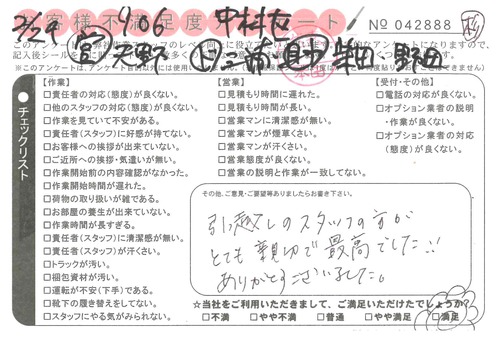 お客様不満足度アンケート
No 042888
杉
2/24
906
中村友
このアンケートは
のレベル向上に役立てて
※このアンケートは、
【作業】
□責任者の対応(態度)が良くない。
□他のスタッフの対応(態度)が良くない。
□作業を見ていて不安がある。
□責任者(スタッフ)に好感が持てない。
□お客様への挨拶が出来ていない。
□ご近所への挨拶・気遣いが無い。
□作業開始前の内容確認がなかった。
□作業開始時間が遅れた。
□荷物の取り扱いが雑である。
□お部屋の養生が出来ていない。
□作業時間が長すぎる。
□責任者(スタッフ)に清潔感が無い。
□責任者(スタッフ)が汗くさい。
□トラックが汚い。
□梱包資材が汚い。
□運転が不安(下手)である。
□靴下の履き替えをしてない。
□スタッフにやる気がみられない。
チェックリスト
【営業】
□見積もり時間に遅れた。
□見積もり時間が長い。
□営業マンに清潔感が無い。
□営業マンが煙草くさい。
□営業マンが汗くさい。
□営業態度が良くない。
□営業の説明と作業が一致してない。
【受付・その他】
□電話の対応が良くない。
□オプション業者の説明
・作業が良くない。
□オプション業者の対応
(態度)が良くない。
その他、ご意見・ご要望等ありましたらお書き下さい。
引越しのスタッフの方が
とても親切で最高でした!!
ありがとうございました。
☆当社をご利用いただきまして、ご満足いただけたでしょうか?
□不満 □やや不満 □普通 □やや満足 □満足